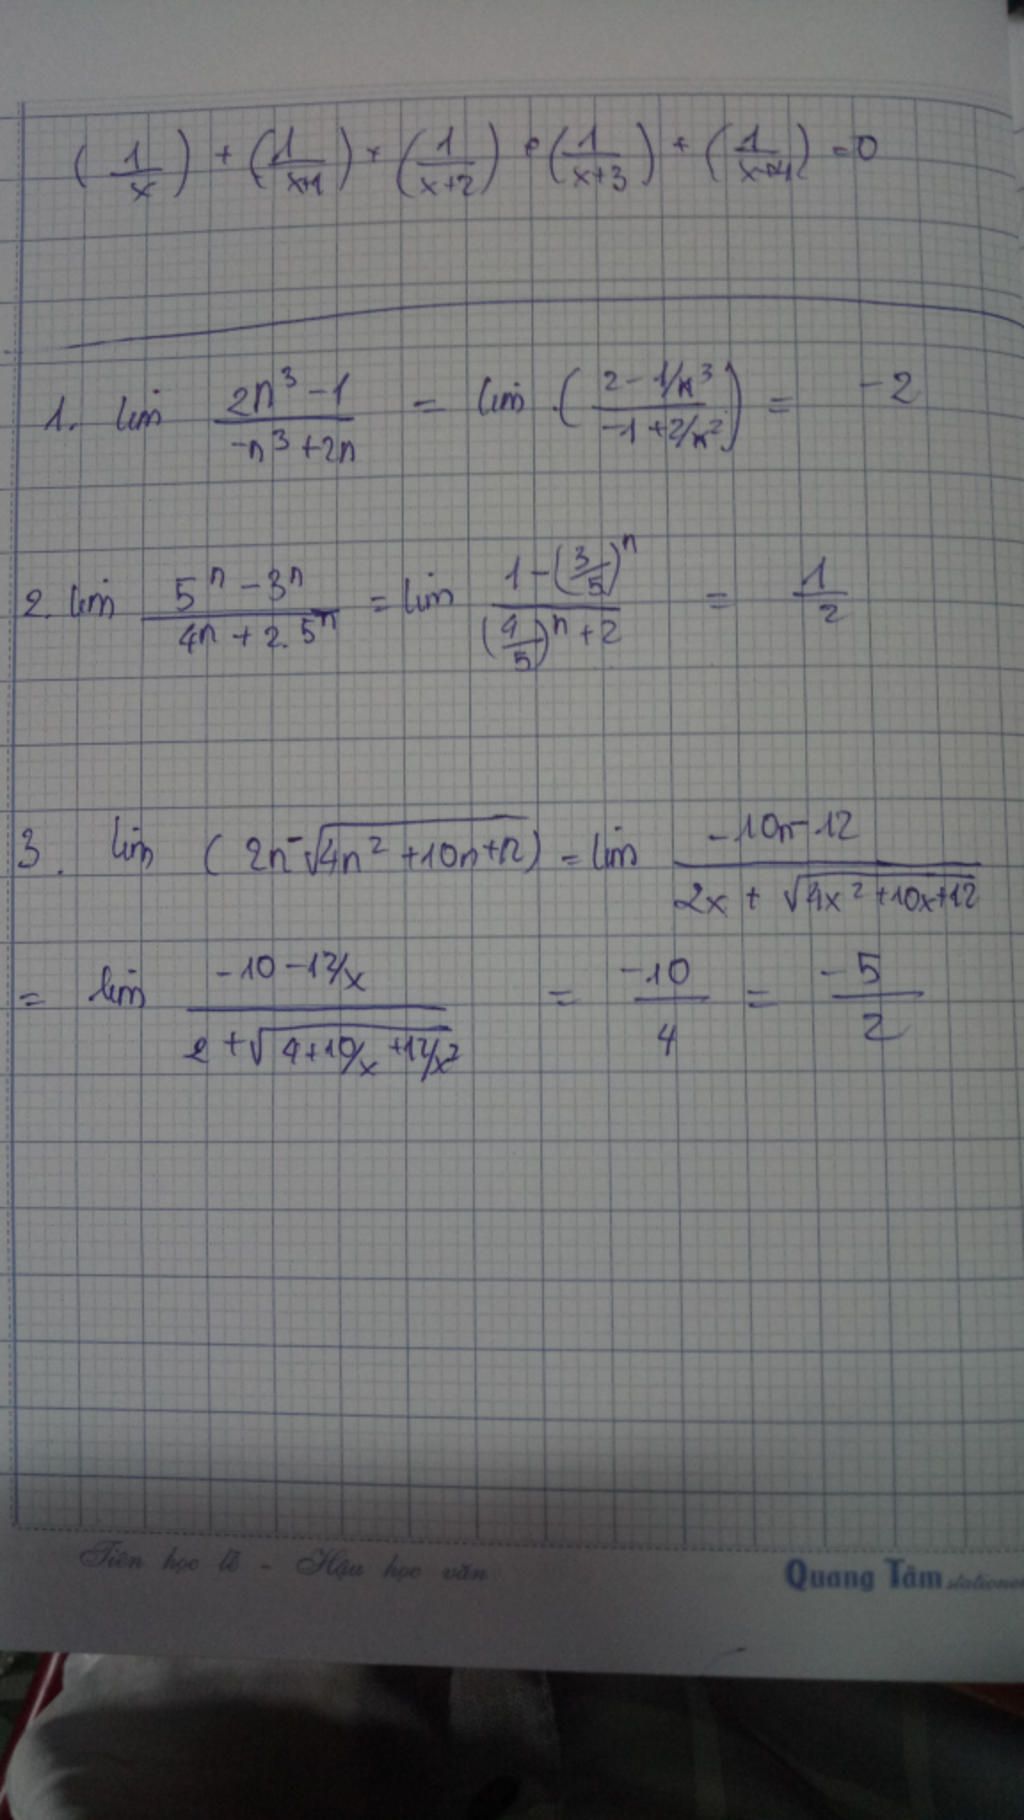 (1/x) + (1/x+1) + (1/x+2) + (1/x+3) + (1/x+4) = 0
1. lim 2n³ - 1 / -n³ + 2n = lim (2 - 1/x³ / -1 + 2/x²) = -2
2. lim 5ⁿ - 3ⁿ / 4n + 2.5ⁿ = lim 1 - (3/5)ⁿ / (4/5)ⁿ + 2 = 1/2
3. lim (2n - √4n² + 10n + 12) = lim -10n - 12 / 2x + √4x² + 10x + 12
= lim -10 - 12/x / 2 + √4 + 10/x + 12/x² = -10/4 = -5/2
Tiên học lễ - Hậu học văn
Quang Tâm